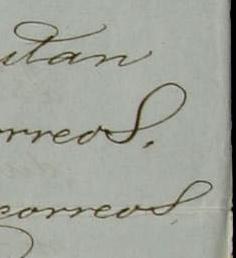 itan
orreos.
correos,